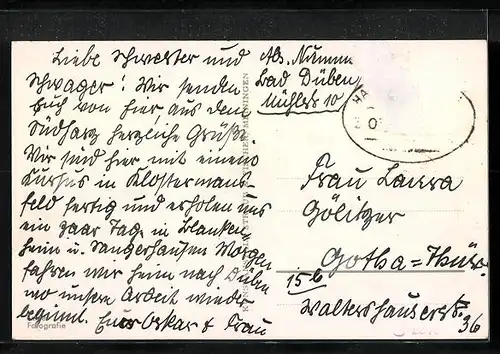 Liebe Schwester und
Schwager! Wir senden
Euch von hier, aus dem
Südharz herzliche Grüße.
Wir sind hier mit einem
in Klostermans-
feld fertig und erholen uns
ein paar Tag, in Blanken
heim u. Sangerhausen Morgen
fahren wir heim nach Düben
wo unsere Arbeit wieder
beginnt. Euer Oskar & Frau
Abs. Numm
Bad Düben
10
Frau Laura
Gölitzer
Gotha=Thür.
15b
Waltershäuserstr.
36
Fotografie